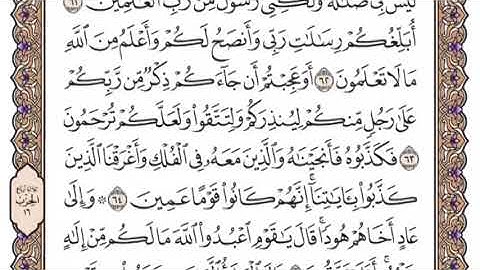 لَيْسَ بِي ضَلَٰلَةٌ وَلَٰكِنِّي رَسُولٌ مِّن رَّبِّ ٱلْعَٰلَمِينَ ٦١
أُبَلِّغُكُمْ رِسَٰلَٰتِ رَبِّي وَأَنصَحُ لَكُمْ وَأَعْلَمُ مِنَ ٱللَّهِ
مَا لَا تَعْلَمُونَ ٦٢ أَوَعَجِبْتُمْ أَن جَآءَكُمْ ذِكْرٌ مِّن رَّبِّكُمْ
عَلَىٰ رَجُلٍ مِّنكُمْ لِيُنذِرَكُمْ وَلِتَتَّقُوا۟ وَلَعَلَّكُمْ تُرْحَمُونَ
٦٣ فَكَذَّبُوهُ فَأَنجَيْنَٰهُ وَٱلَّذِينَ مَعَهُۥ فِي ٱلْفُلْكِ وَأَغْرَقْنَا ٱلَّذِينَ
كَذَّبُوا۟ بِـَٔايَٰتِنَآ ۚ إِنَّهُمْ كَانُوا۟ قَوْمًا عَمِينَ ٦٤ ۞ وَإِلَىٰ
عَادٍ أَخَاهُمْ هُودًا ۗ قَالَ يَٰقَوْمِ ٱعْبُدُوا۟ ٱللَّهَ مَا لَكُم مِّنْ إِلَٰهٍ
الحزب
١٦